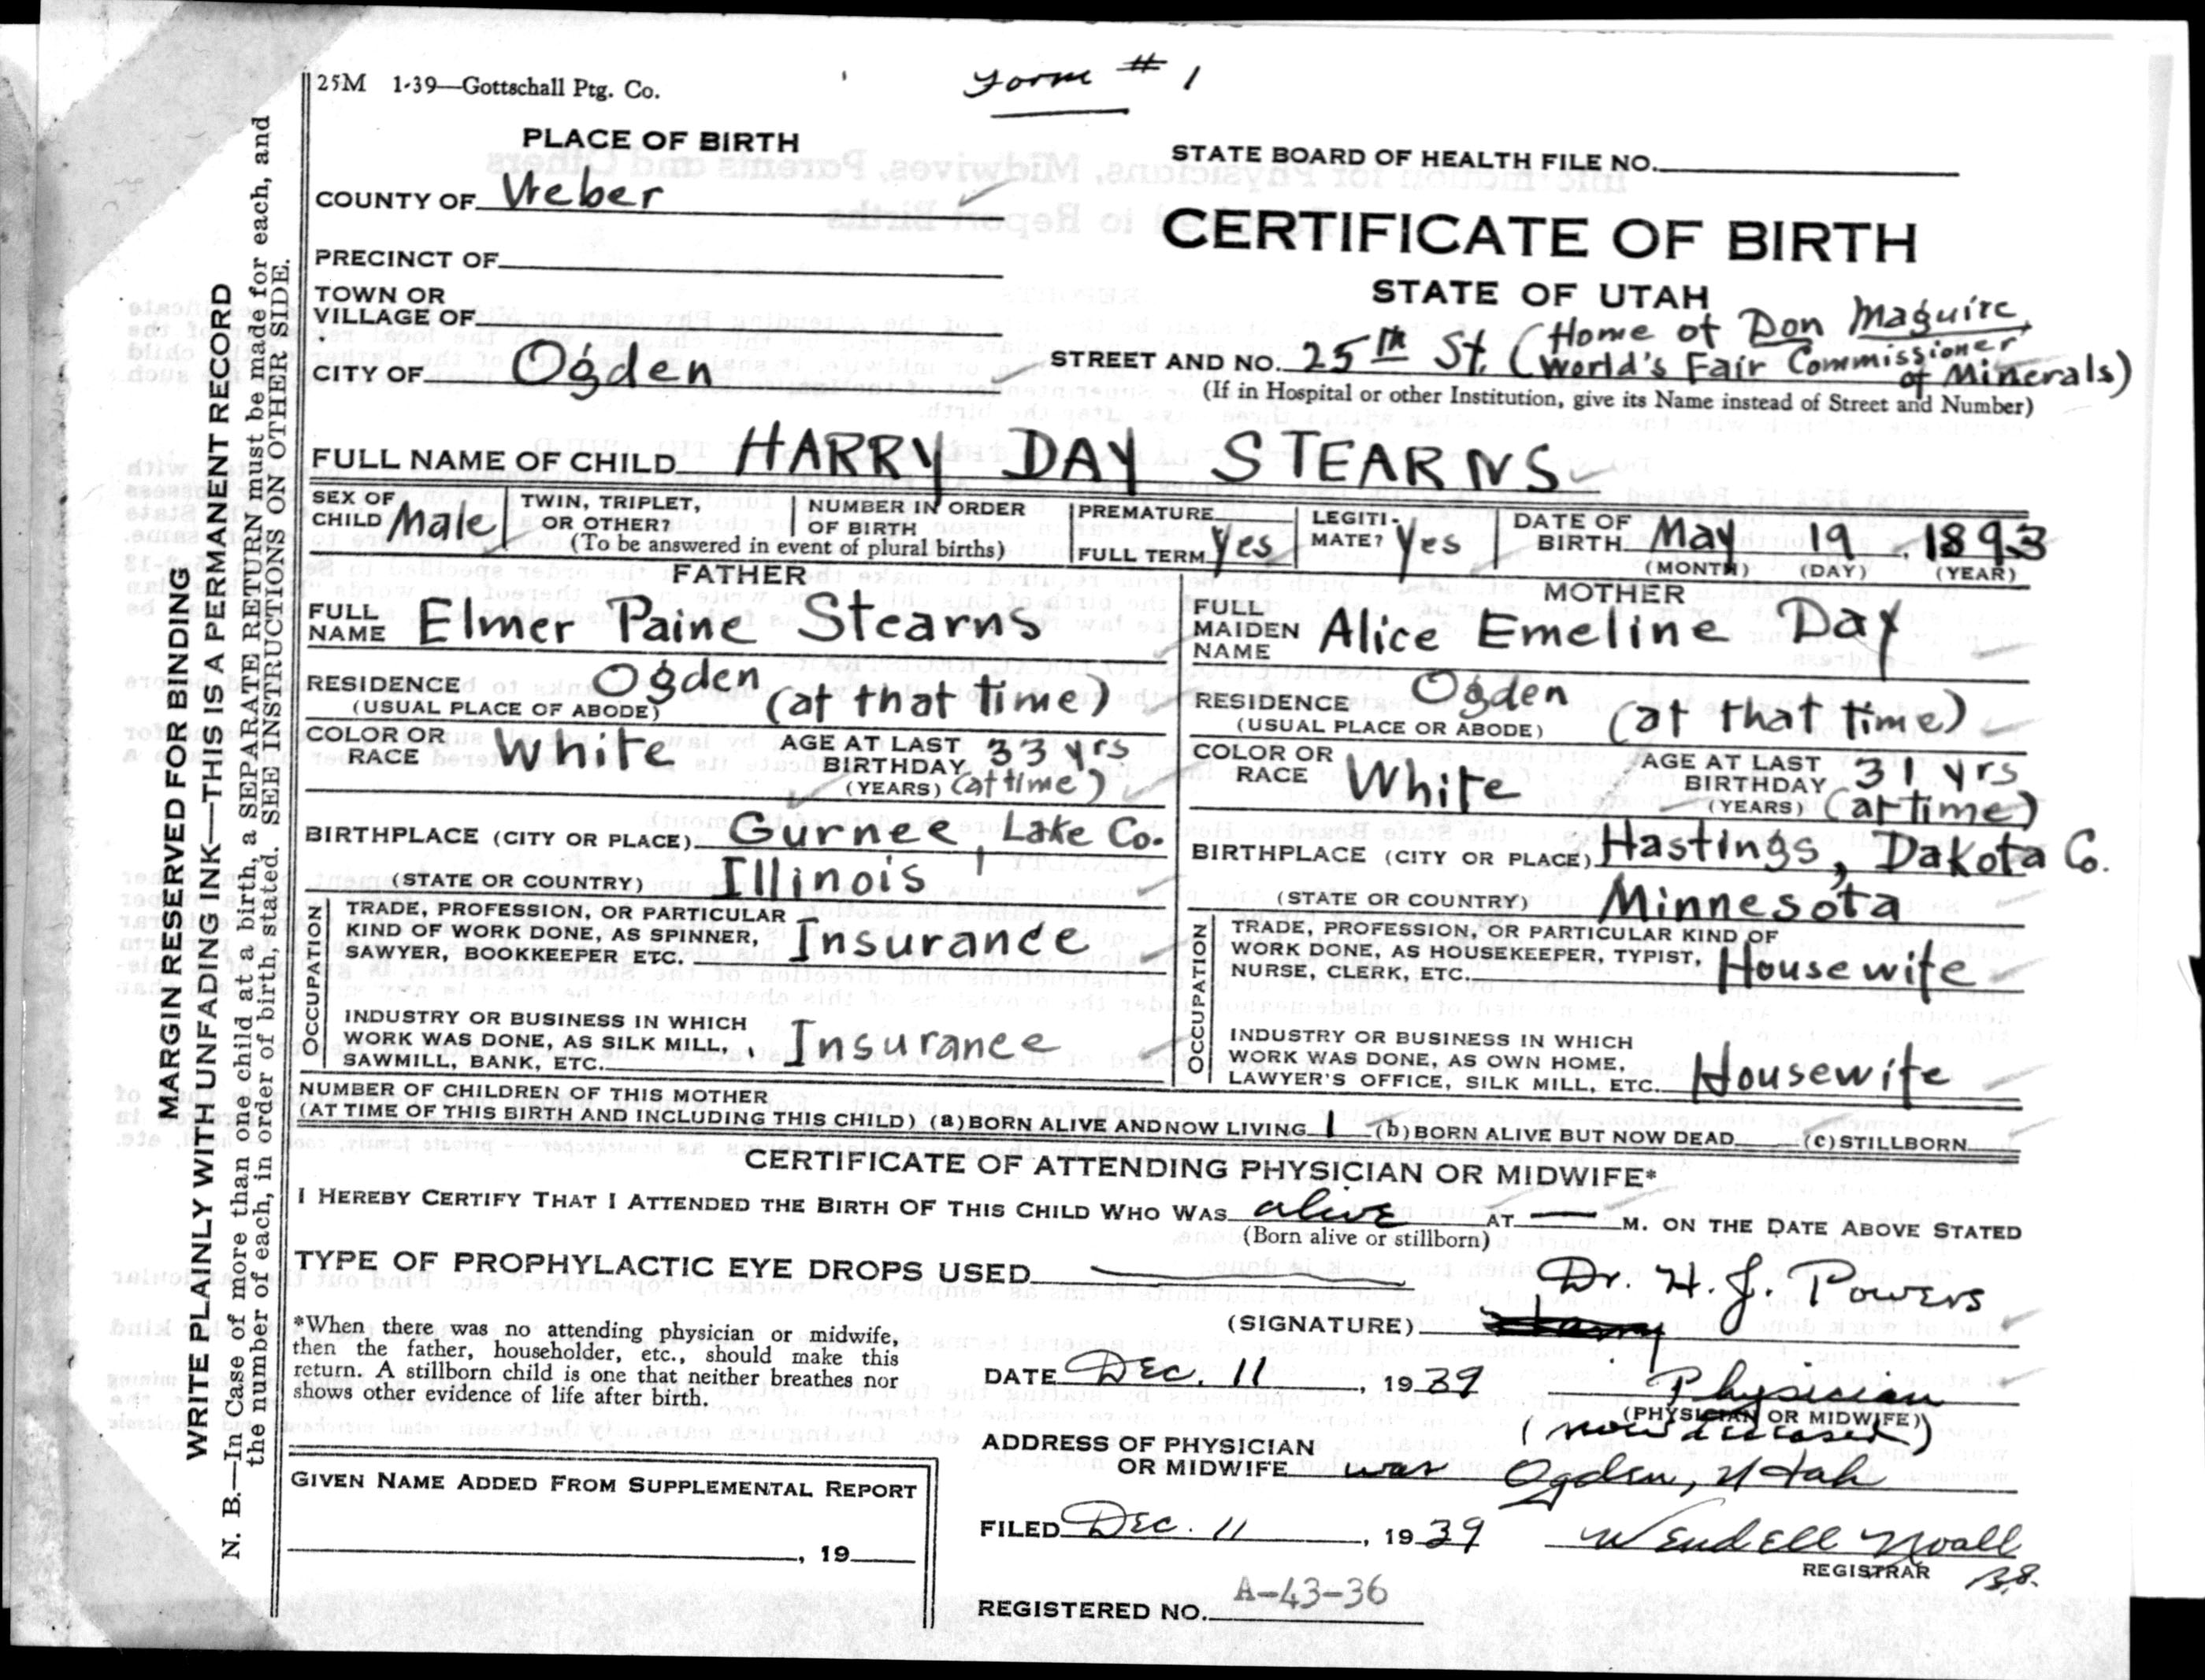 25M 1-39—Gottschall Ptg. Co.
Form # 1
PLACE OF BIRTH
STATE BOARD OF HEALTH FILE NO.
COUNTY OF Weber
CERTIFICATE OF BIRTH
PRECINCT OF
STATE OF UTAH
TOWN OR
VILLAGE OF
CITY OF Ogden
STREET AND NO. 25th St. (Home of Don Maguire,
World's Fair Commissioner
of Minerals)
(If in Hospital or other Institution, give its Name instead of Street and Number)
FULL NAME OF CHILD HARRY DAY STEARNS
SEX OF
CHILD Male
TWIN, TRIPLET,
OR OTHER?
NUMBER IN ORDER
OF BIRTH
(To be answered in event of plural births)
PREMATURE
FULL TERM Yes
LEGITI-
MATE? Yes
DATE OF
BIRTH May 19, 1893
(MONTH) (DAY) (YEAR)
FATHER
FULL
NAME Elmer Paine Stearns
RESIDENCE Ogden (at that time)
(USUAL PLACE OF ABODE)
COLOR OR
RACE White
AGE AT LAST
BIRTHDAY 33 yrs
(YEARS) (at time)
BIRTHPLACE (CITY OR PLACE) Gurnee, Lake Co.
(STATE OR COUNTRY) Illinois
OCCUPATION
TRADE, PROFESSION, OR PARTICULAR
KIND OF WORK DONE, AS SPINNER,
SAWYER, BOOKKEEPER ETC. Insurance
INDUSTRY OR BUSINESS IN WHICH
WORK WAS DONE, AS SILK MILL,
SAWMILL, BANK, ETC. Insurance
MOTHER
FULL
MAIDEN
NAME Alice Emeline Day
RESIDENCE Ogden (at that time)
(USUAL PLACE OR ABODE)
COLOR OR
RACE White
AGE AT LAST
BIRTHDAY 31 yrs
(YEARS) (at time)
BIRTHPLACE (CITY OR PLACE) Hastings, Dakota Co.
(STATE OR COUNTRY) Minnesota
OCCUPATION
TRADE, PROFESSION, OR PARTICULAR KIND OF
WORK DONE, AS HOUSEKEEPER, TYPIST,
NURSE, CLERK, ETC. Housewife
INDUSTRY OR BUSINESS IN WHICH
WORK WAS DONE, AS OWN HOME,
LAWYER'S OFFICE, SILK MILL, ETC. Housewife
NUMBER OF CHILDREN OF THIS MOTHER
(AT TIME OF THIS BIRTH AND INCLUDING THIS CHILD) (a) BORN ALIVE AND NOW LIVING 1 (b) BORN ALIVE BUT NOW DEAD (c) STILLBORN
CERTIFICATE OF ATTENDING PHYSICIAN OR MIDWIFE*
I HEREBY CERTIFY THAT I ATTENDED THE BIRTH OF THIS CHILD WHO WAS alive AT — M. ON THE DATE ABOVE STATED
(Born alive or stillborn)
TYPE OF PROPHYLACTIC EYE DROPS USED
Dr. H. J. Powers
(SIGNATURE)
*When there was no attending physician or midwife,
then the father, householder, etc., should make this
return. A stillborn child is one that neither breathes nor
shows other evidence of life after birth.
DATE Dec. 11, 1939
Physician
(PHYSICIAN OR MIDWIFE)
(now deceased)
ADDRESS OF PHYSICIAN
OR MIDWIFE was Ogden, Utah
GIVEN NAME ADDED FROM SUPPLEMENTAL REPORT
, 19
FILED Dec. 11, 1939
Wendell Noall
REGISTRAR
B.S.
REGISTERED NO. A-43-36
MARGIN RESERVED FOR BINDING
WRITE PLAINLY WITH UNFADING INK—THIS IS A PERMANENT RECORD
N. B.—In Case of more than one child at a birth, a SEPARATE RETURN must be made for each, and
the number of each, in order of birth, stated. SEE INSTRUCTIONS ON OTHER SIDE.